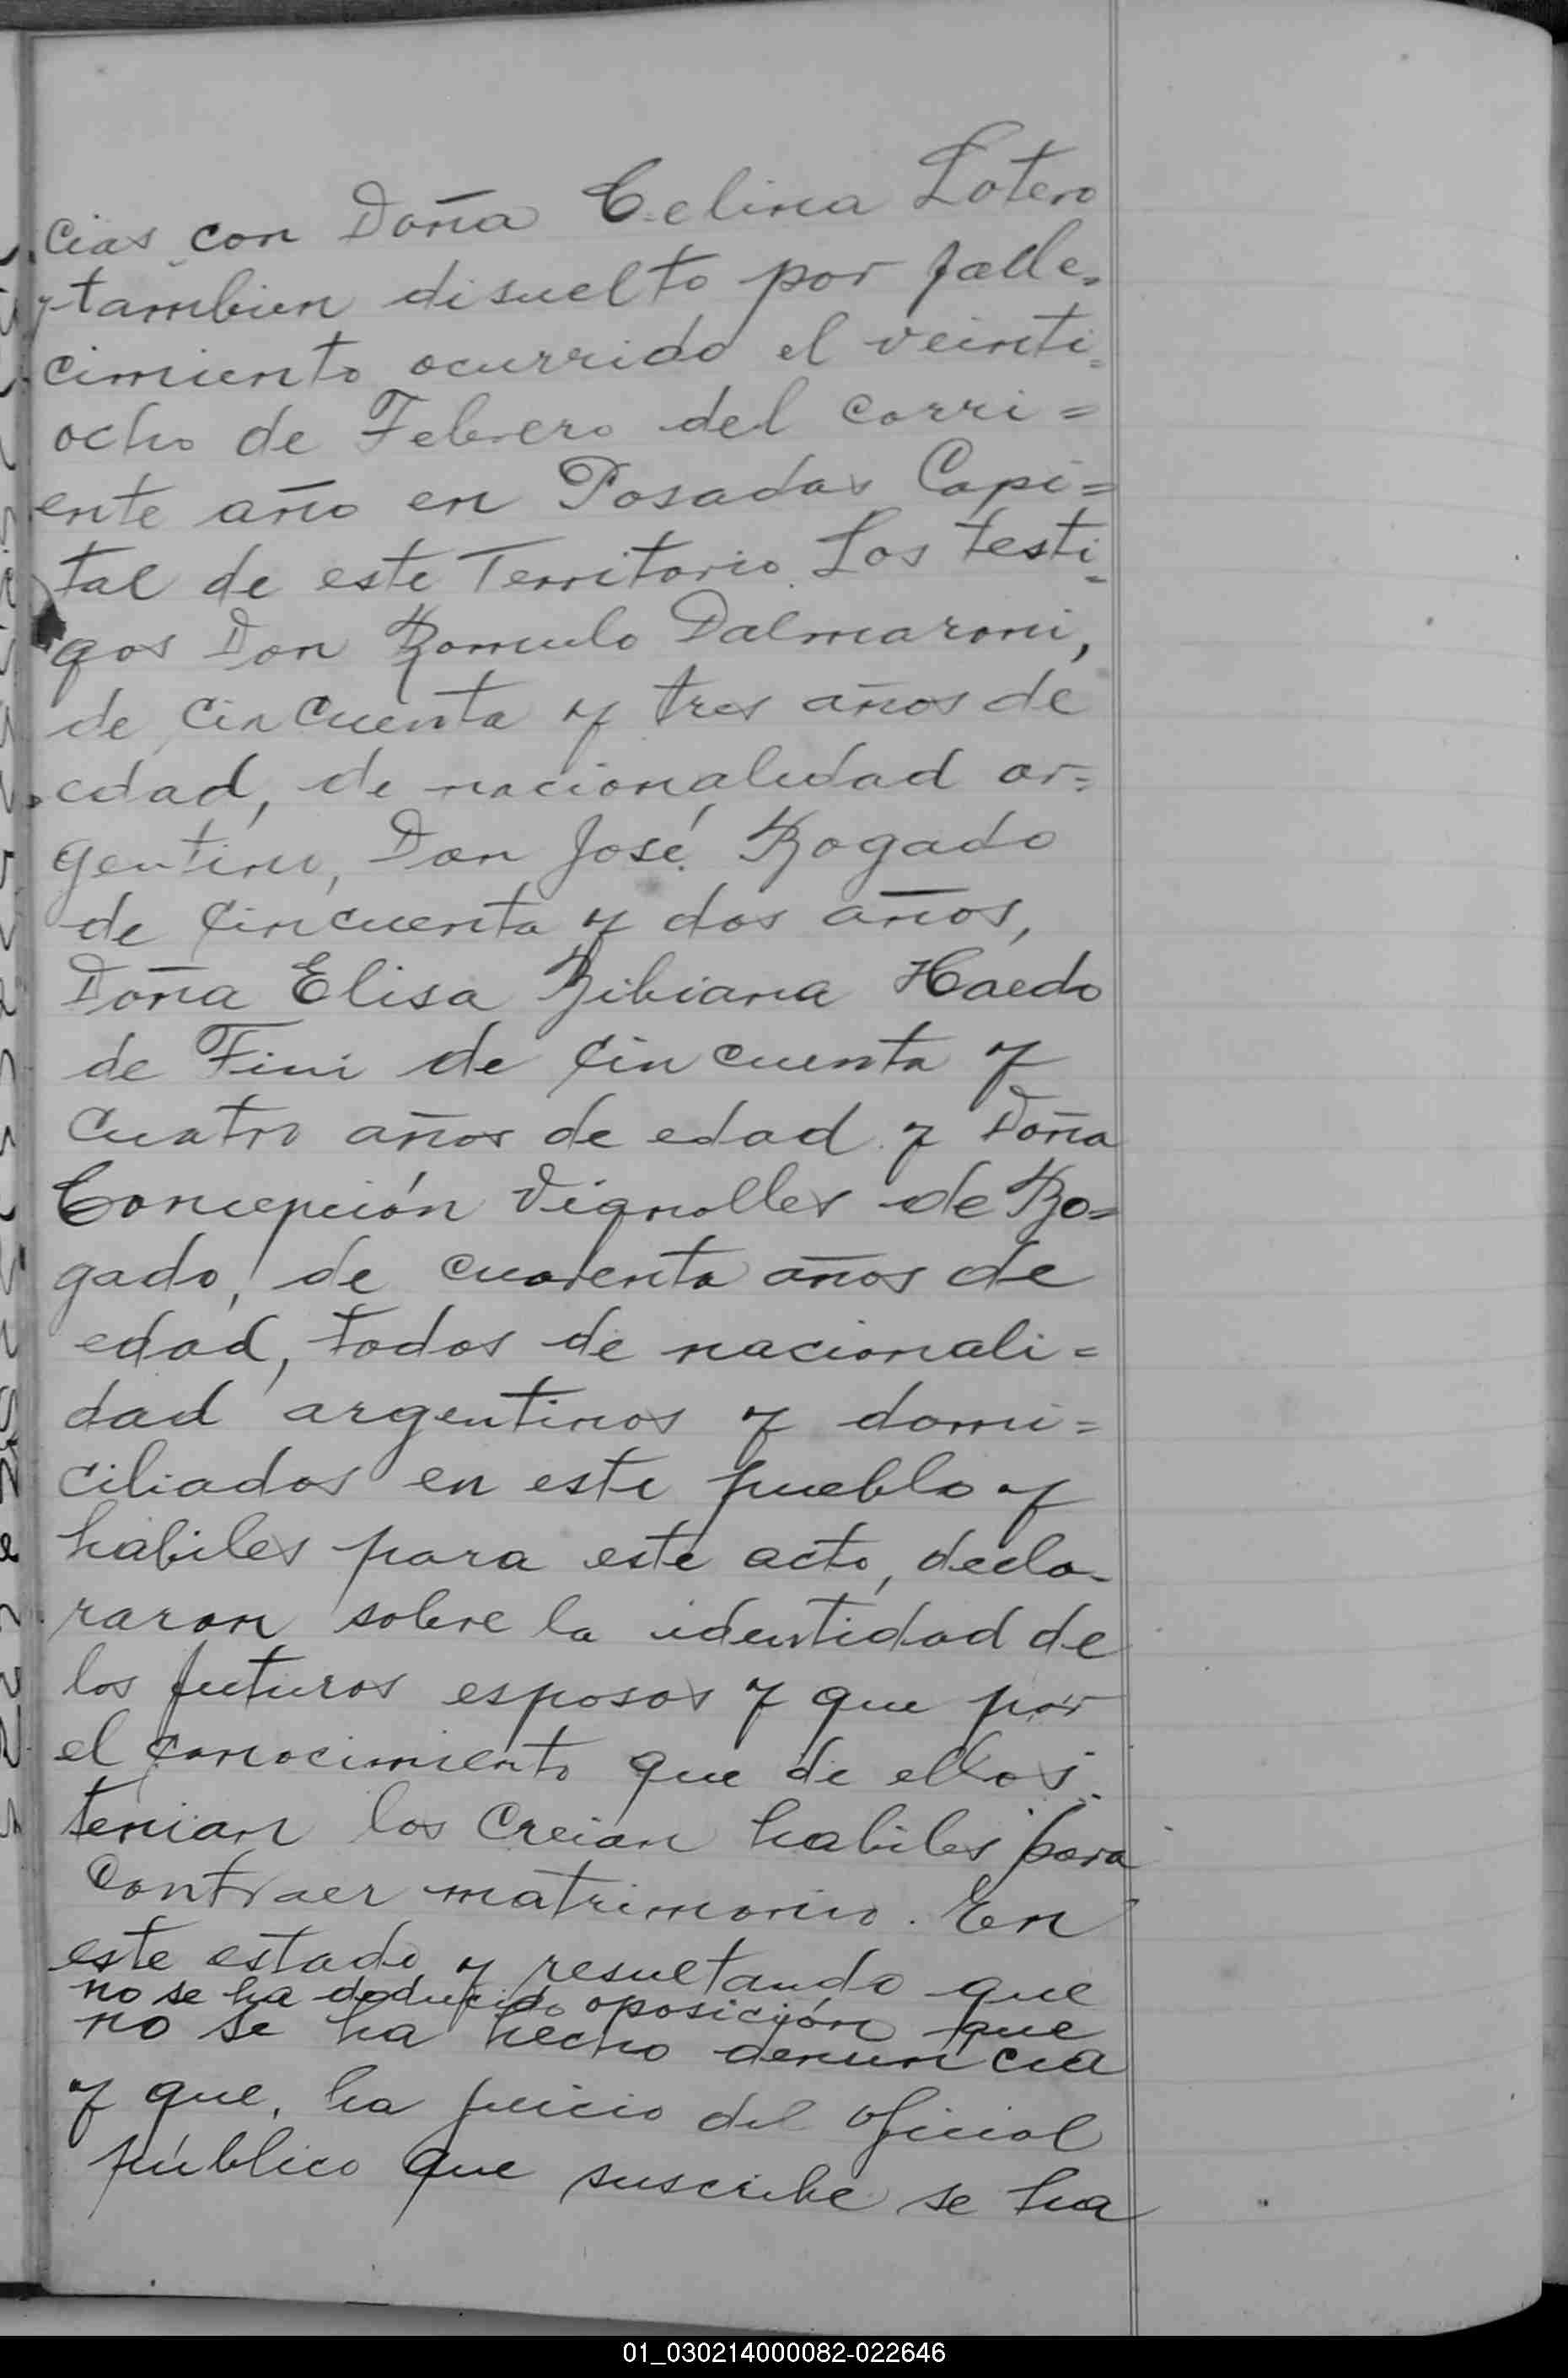 cias con Doña Celina Lotero
y tambien disuelto por falle=
cimiento ocurrido el veinti=
ocho de Febrero del corri=
ente año en Posadas Capi=
tal de este Territorio. Los testi=
gos Don Romulo Dalmaroni,
de cincuenta y tres años de
edad, de nacionalidad ar=
gentino, Don José Rogado
de cincuenta y dos años,
Doña Elisa Bibiana Haedo
de Fini de cincuenta y
cuatro años de edad y Doña
Concepción Vignolles de Ro=
gado, de cuarenta años de
edad, todos de nacionali=
dad argentinos y domi=
ciliados en este pueblo y
habiles para este acto, decla-
raron sobre la identidad de
los futuros esposos y que por
el conocimiento que de ellos
tenian los creian habiles para
contraer matrimonio. En
este estado y resultando que
no se ha deducido oposición que
no se ha hecho denuncia
y que, ha juicio del oficial
público que suscribe se ha
01_030214000082-022646